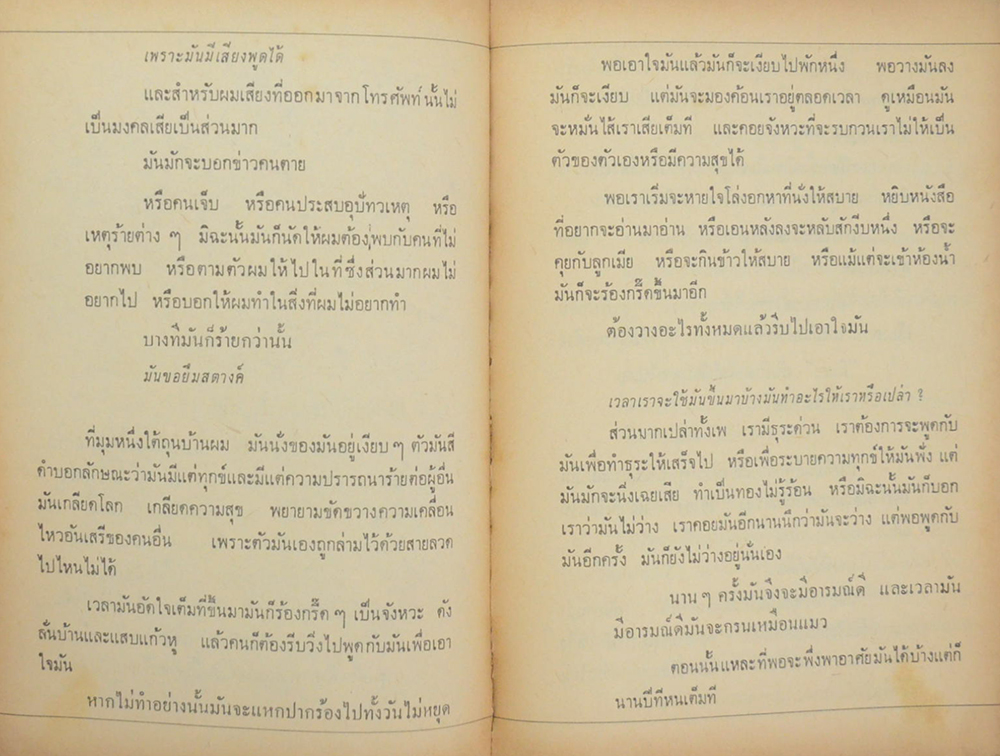 เพราะมันมีเสียงพูดได้
และสำหรับผมเสียงที่ออกมาจากโทรศัพท์นั้นไม่
เป็นมงคลเสียเป็นส่วนมาก
มันมักจะบอกข่าวคนตาย
หรือคนเจ็บ หรือคนประสบอุบัทวเหตุ หรือ
เหตุร้ายต่าง ๆ มิฉะนั้นมันก็นัดให้ผมต้องพบกับคนที่ไม่
อยากพบ หรือตามตัวผมให้ไปในที่ซึ่งส่วนมากผมไม่
อยากไป หรือบอกให้ผมทำในสิ่งที่ผมไม่อยากทำ
บางทีมันก็ร้ายกว่านั้น
มันขอยืมสตางค์
ที่มุมหนึ่งใต้ถุนบ้านผม มันนั่งของมันอยู่เงียบ ๆ ตัวมันสี
ดำบอกลักษณะว่ามันมีแต่ทุกข์และมีแต่ความปรารถนาร้ายต่อผู้อื่น
มันเกลียดโลก เกลียดความสุข พยายามขัดขวางความเคลื่อน
ไหวอันเสรีของคนอื่น เพราะตัวมันเองถูกล่ามไว้ด้วยสายลวด
ไปไหนไม่ได้
เวลามันอัดใจเต็มที่ขึ้นมามันก็ร้องกรี๊ด ๆ เป็นจังหวะ ดัง
ลั่นบ้านและแสบแก้วหู แล้วคนก็ต้องรีบวิ่งไปพูดกับมันเพื่อเอา
ใจมัน
หากไม่ทำอย่างนั้นมันจะแหกปากร้องไปทั้งวันไม่หยุด
พอเอาใจมันแล้วมันก็จะเงียบไปพักหนึ่ง พอวางมันลง
มันก็จะเงียบ แต่มันจะมองค้อนเราอยู่ตลอดเวลา ดูเหมือนมัน
จะหมั่นไส้เราเสียเต็มที และคอยจังหวะที่จะรบกวนเราไม่ให้เป็น
ตัวของตัวเองหรือมีความสุขได้
พอเราเริ่มจะหายใจโล่งอกหาที่นั่งให้สบาย หยิบหนังสือ
ที่อยากจะอ่านมาอ่าน หรือเอนหลังลงจะหลับสักงีบหนึ่ง หรือจะ
คุยกับลูกเมีย หรือจะกินข้าวให้สบาย หรือแม้แต่จะเข้าห้องน้ำ
มันก็จะร้องกรี๊ดขึ้นมาอีก
ต้องวางอะไรทั้งหมดแล้วรีบไปเอาใจมัน
เวลาเราจะใช้มันขึ้นมาบ้างมันทำอะไรให้เราหรือเปล่า ?
ส่วนมากเปล่าทั้งเพ เรามีธุระด่วน เราต้องการจะพูดกับ
มันเพื่อทำธุระให้เสร็จไป หรือเพื่อระบายความทุกข์ให้มันฟัง แต่
มันมักจะนิ่งเฉยเสีย ทำเป็นทองไม่รู้ร้อน หรือมิฉะนั้นมันก็บอก
เราว่ามันไม่ว่าง เราคอยมันอีกนานนึกว่ามันจะว่าง แต่พอพูดกับ
มันอีกครั้ง มันก็ยังไม่ว่างอยู่นั่นเอง
นาน ๆ ครั้งมันจึงจะมีอารมณ์ดี และเวลามัน
มีอารมณ์ดีมันจะกรนเหมือนแมว
ตอนนั้นแหละที่พอจะพึ่งพาอาศัยมันได้บ้างแต่ก็
นานปีทีหนเต็มที